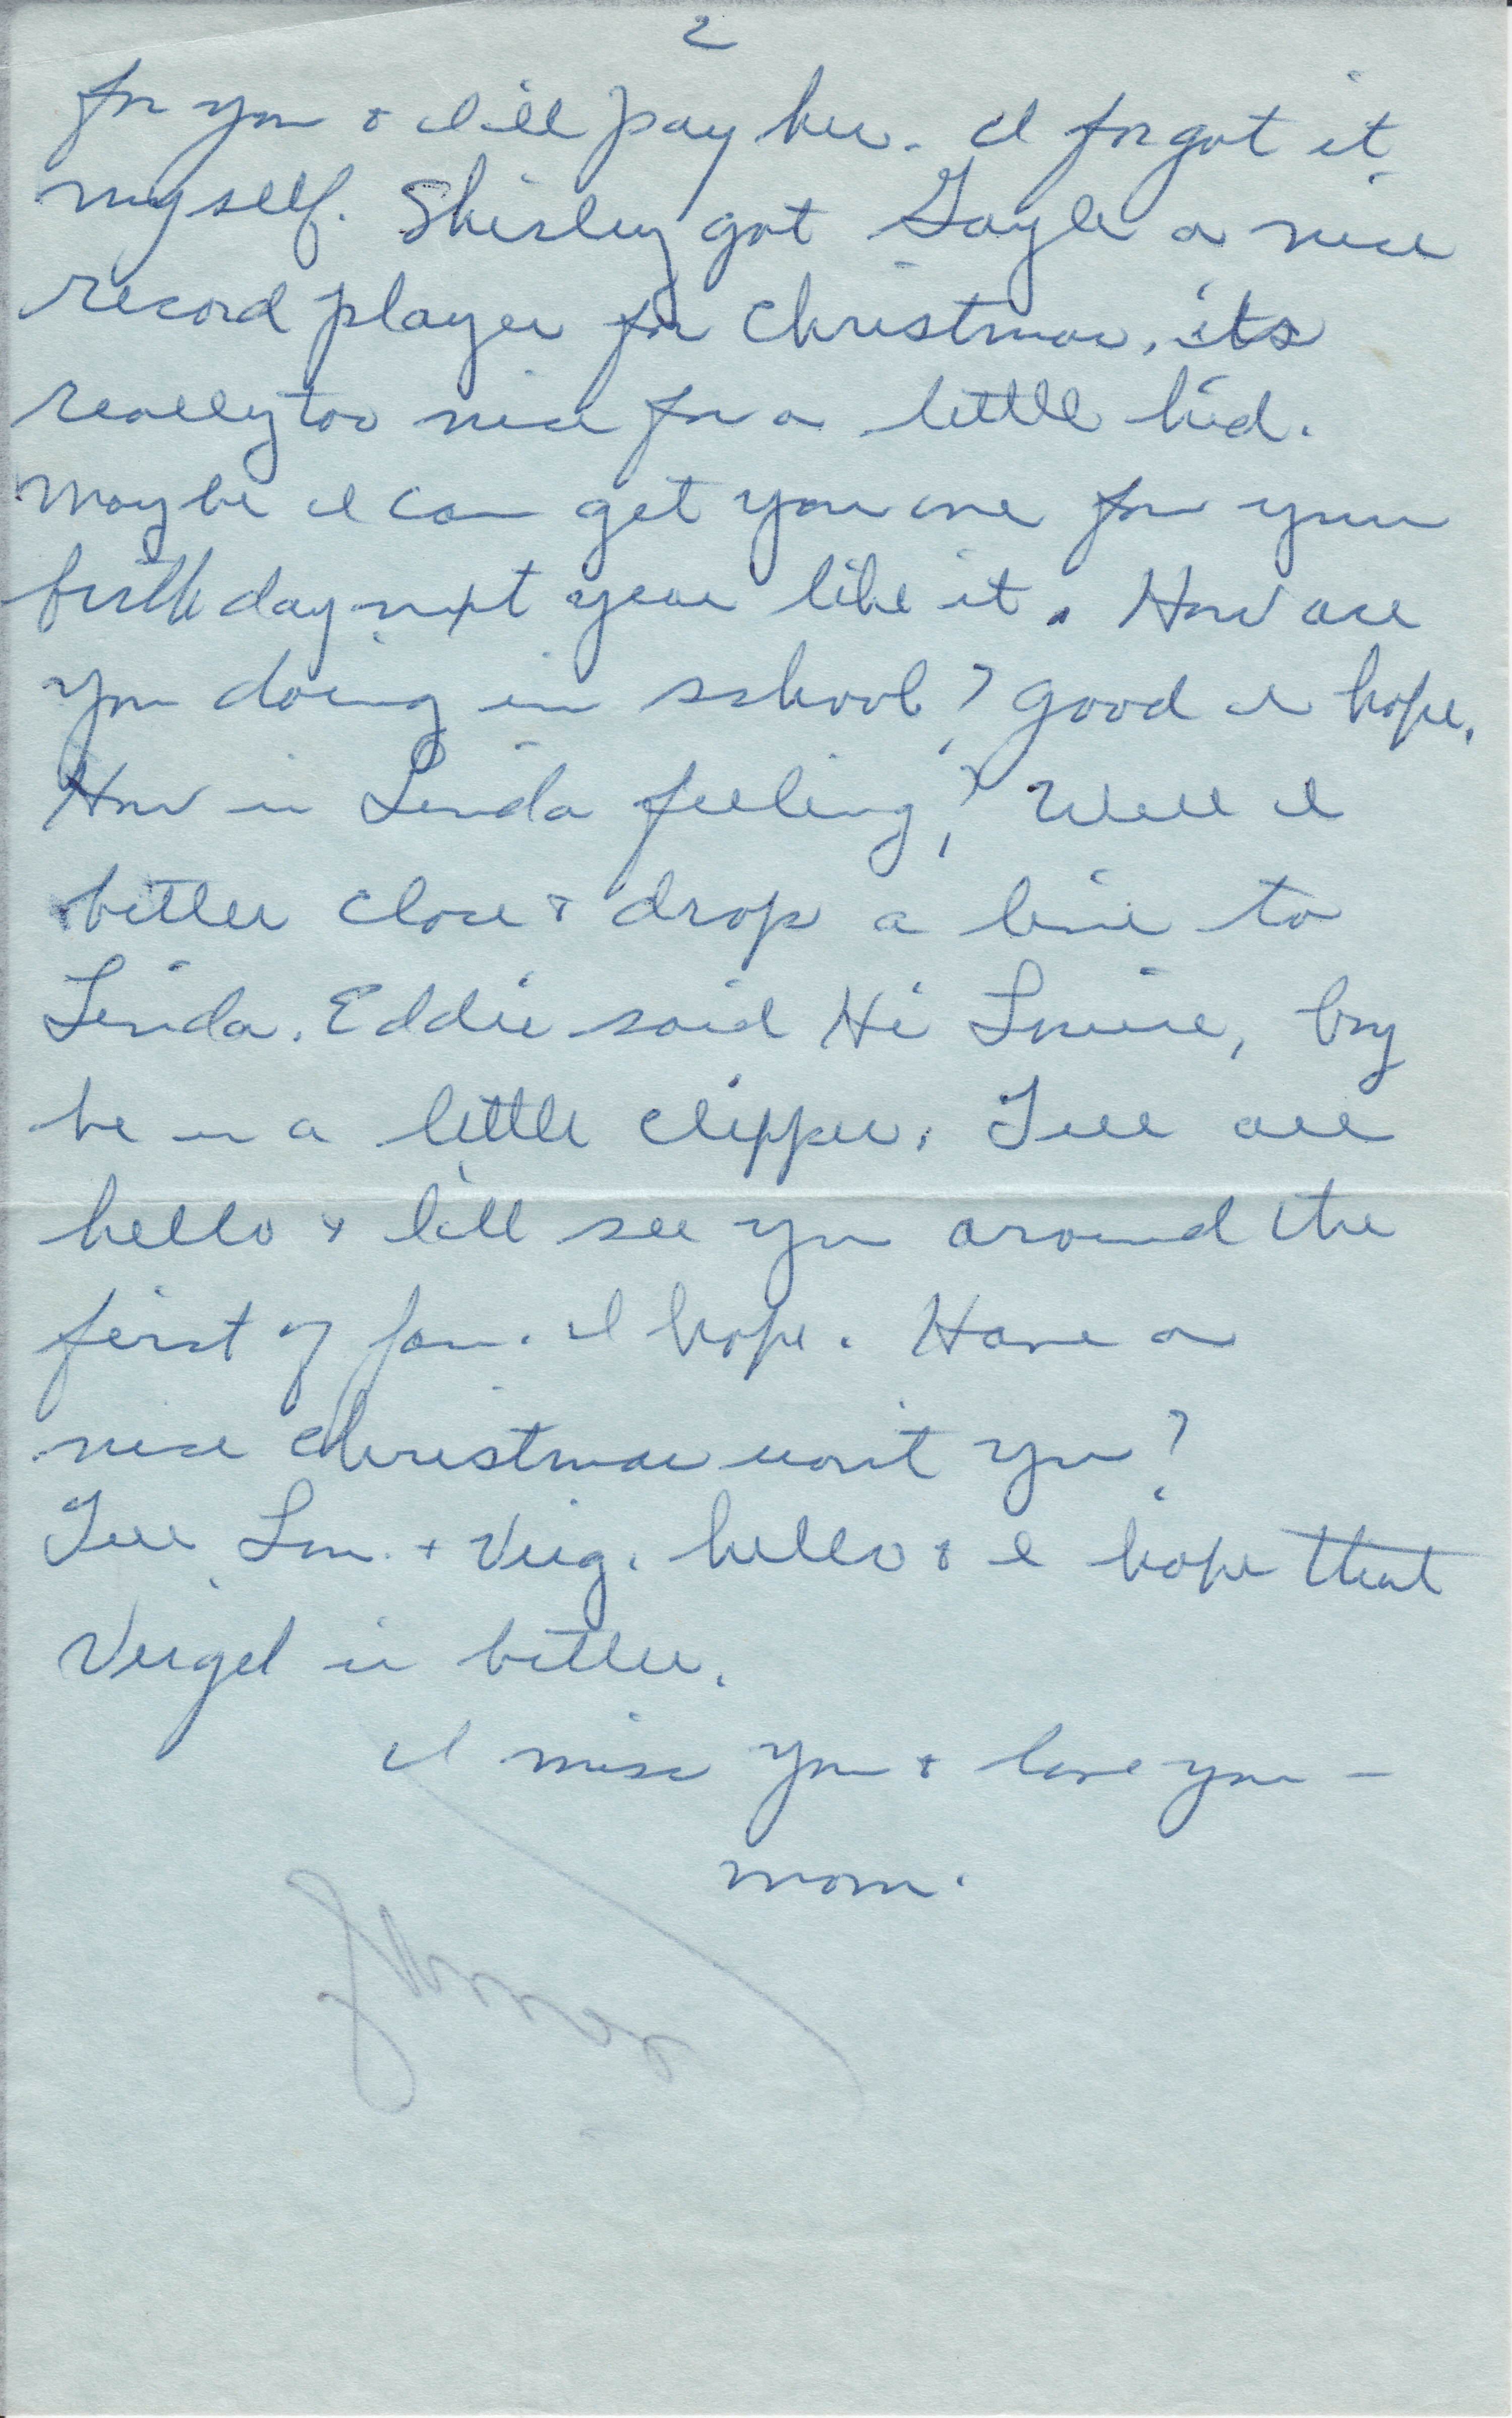 2
for you & I'll pay her. I forgot it
myself. Shirley got Gayle a nice
record player for Christmas, its
really too nice for a little kid.
Maybe I can get you one for your
birthday next year like it. How are
you doing in school? Good I hope.
How is Linda feeling? Well I
better close & drop a line to
Linda. Eddie said Hi Louise, boy
he is a little clipper. Tell all
hello & I'll see you around the
first of Jan. I hope. Have a
nice Christmas won't you?
Tell Lou. + Virg. hello & I hope that
Virgel is better.
I miss you & love you —
mom.